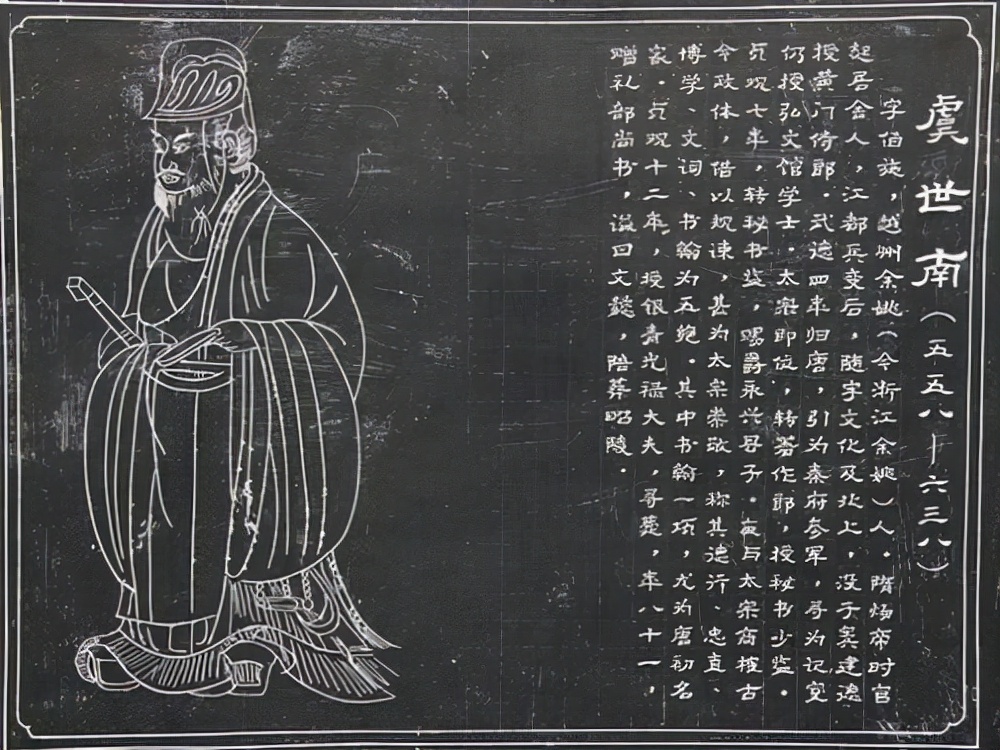 虞世南（五五八——六三八）
字伯施，越州余姚（今浙江余姚）人。隋炀帝时官
起居舍人，江都兵变后，随宇文化及北上，没于窦建德
授黄门侍郎。武德四年归唐，引为秦府参军，寻为记室
仍授弘文馆学士。太宗即位，转著作郎，授秘书少监。
贞观七年，转秘书监，赐爵永兴县子。夜与太宗商榷古
今政体，借以规谏，甚为太宗崇敬，称其德行、忠直、
博学、文词、书翰为五绝。其中书翰一项，尤为唐初名
家。贞观十二年，授银青光禄大夫，寻薨，年八十一，
赠礼部尚书，谥曰文懿，陪葬昭陵。